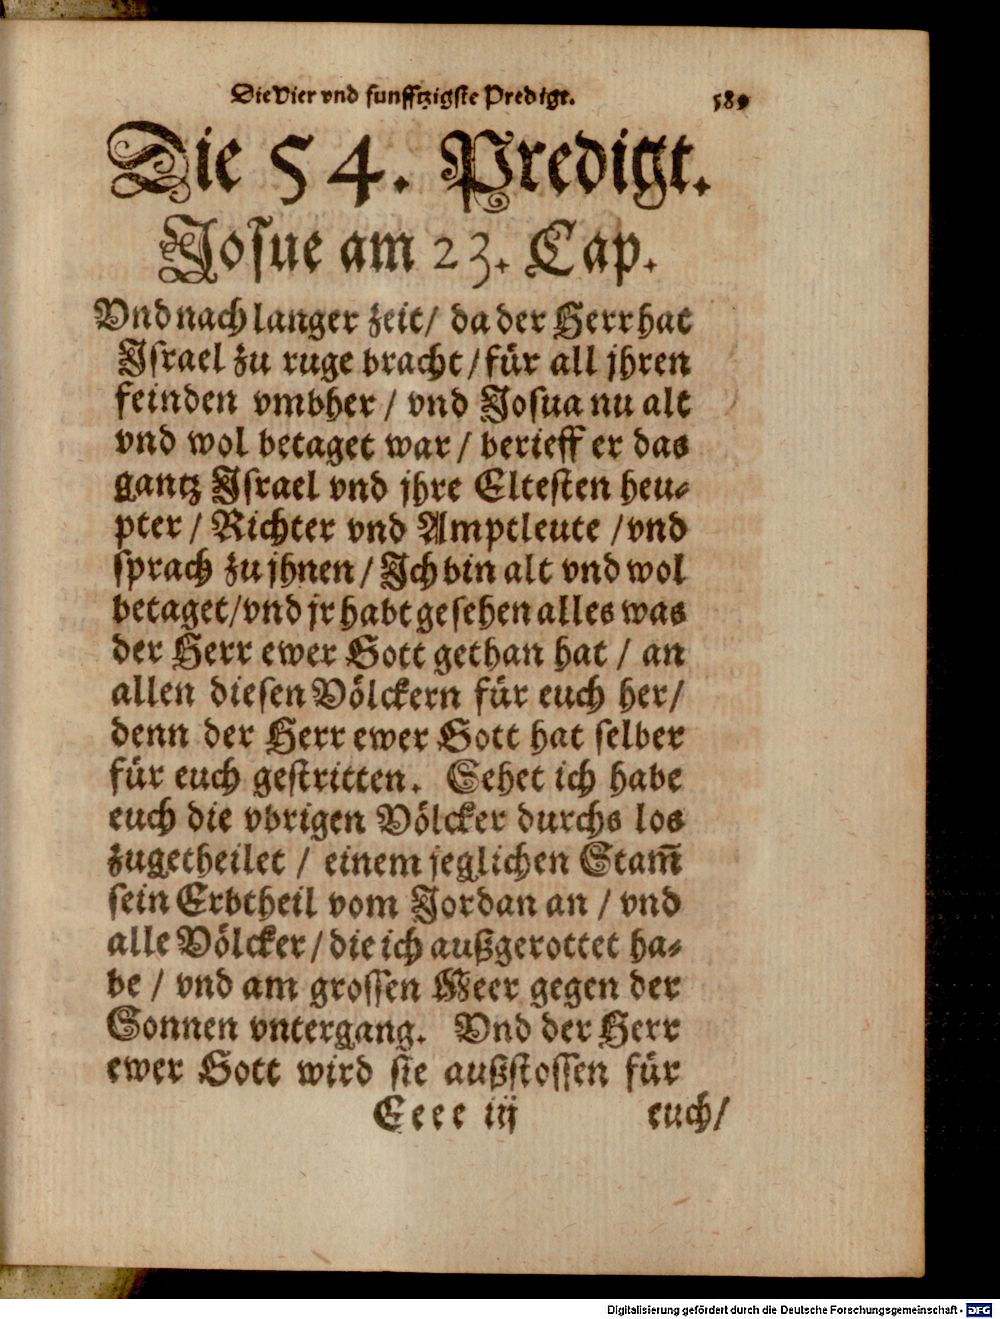 Die Vier vnd funfftzigste Predigt. 589
Die 54. Predigt.
Josue am 23. Cap.
Vnd nach langer zeit/ da der Herr hat
Israel zu ruge bracht/ für all jhren
feinden vmbher / vnd Josua nu alt
vnd wol betaget war / berieff er das
gantz Israel vnd jhre Eltesten heu⸗
pter / Richter vnd Amptleute / vnd
sprach zu jhnen / Ich bin alt vnd wol
betaget/ vnd jr habt gesehen alles was
der Herr ewer Gott gethan hat / an
allen diesen Völckern für euch her/
denn der Herr ewer Gott hat selber
für euch gestritten. Sehet ich habe
euch die vbrigen Völcker durchs los
zugetheilet / einem jeglichen Stam̄
sein Erbtheil vom Jordan an / vnd
alle Völcker / die ich außgerottet ha⸗
be / vnd am grossen Meer gegen der
Sonnen vntergang. Vnd der Herr
ewer Gott wird sie außstossen für
Eeee iij euch/
Digitalisierung gefördert durch die Deutsche Forschungsgemeinschaft - DFG